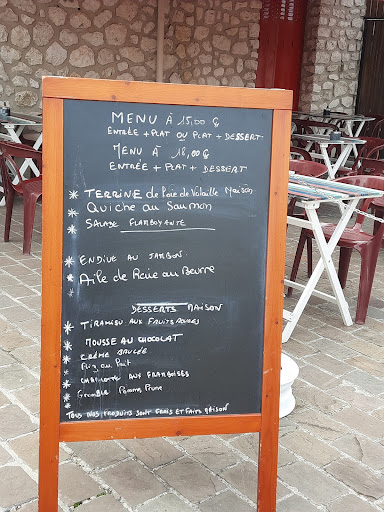 MENU À 15,00 €
ENTRÉE + PLAT OU PLAT + DESSERT
MENU À 18,00 €
ENTRÉE + PLAT + DESSERT
* TERRINE de Foie de Volaille Maison
* Quiche au Saumon
* SALADE FLAMBOYANTE
* ENDIVE AU JAMBON
* Aile de Raie au Beurre
DESSERTS MAISON
* TIRAMISU AUX FRUITS ROUGES
* MOUSSE AU CHOCOLAT
* CRÈME BRULÉE
Riz au lait
* CHARLOTTE AUX FRAMBOISES
* Crumble Pomme Prune
* TOUS NOS PRODUITS SONT FRAIS ET FAITS MAISON